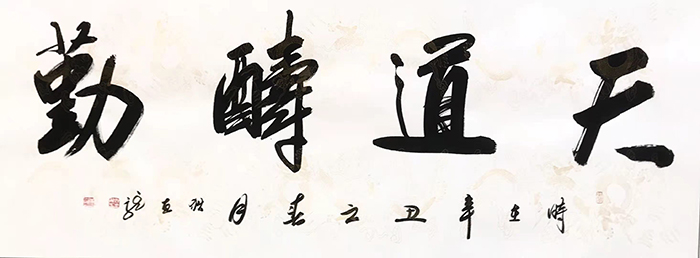 天道醻勤
時在辛丑之春月